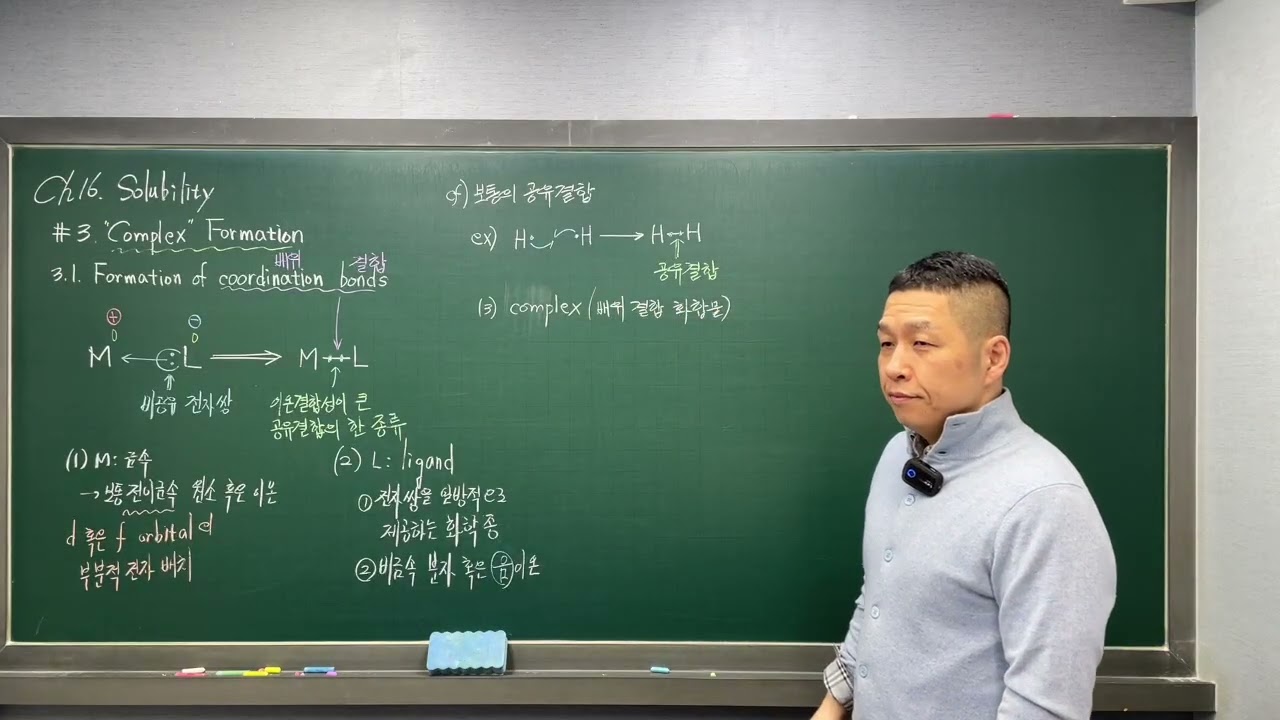 Ch16. Solubility
#3. "Complex" Formation
배위 결합
3.1. Formation of coordination bonds
⊕ ⊖
M ← :L ⟹ M··L
비공유 전자쌍
이온결합성이 큰
공유결합의 한 종류
(1) M: 금속
→ 보통 전이금속 원소 혹은 이온
d 혹은 f orbital에
부분적 전자 배치
(2) L: ligand
① 전자쌍을 일방적으로
제공하는 화학종
② 비금속 분자 혹은 음이온
cf) 보통의 공유결합
ex) H· ·H → H··H
공유결합
(3) complex (배위 결합 화합물)